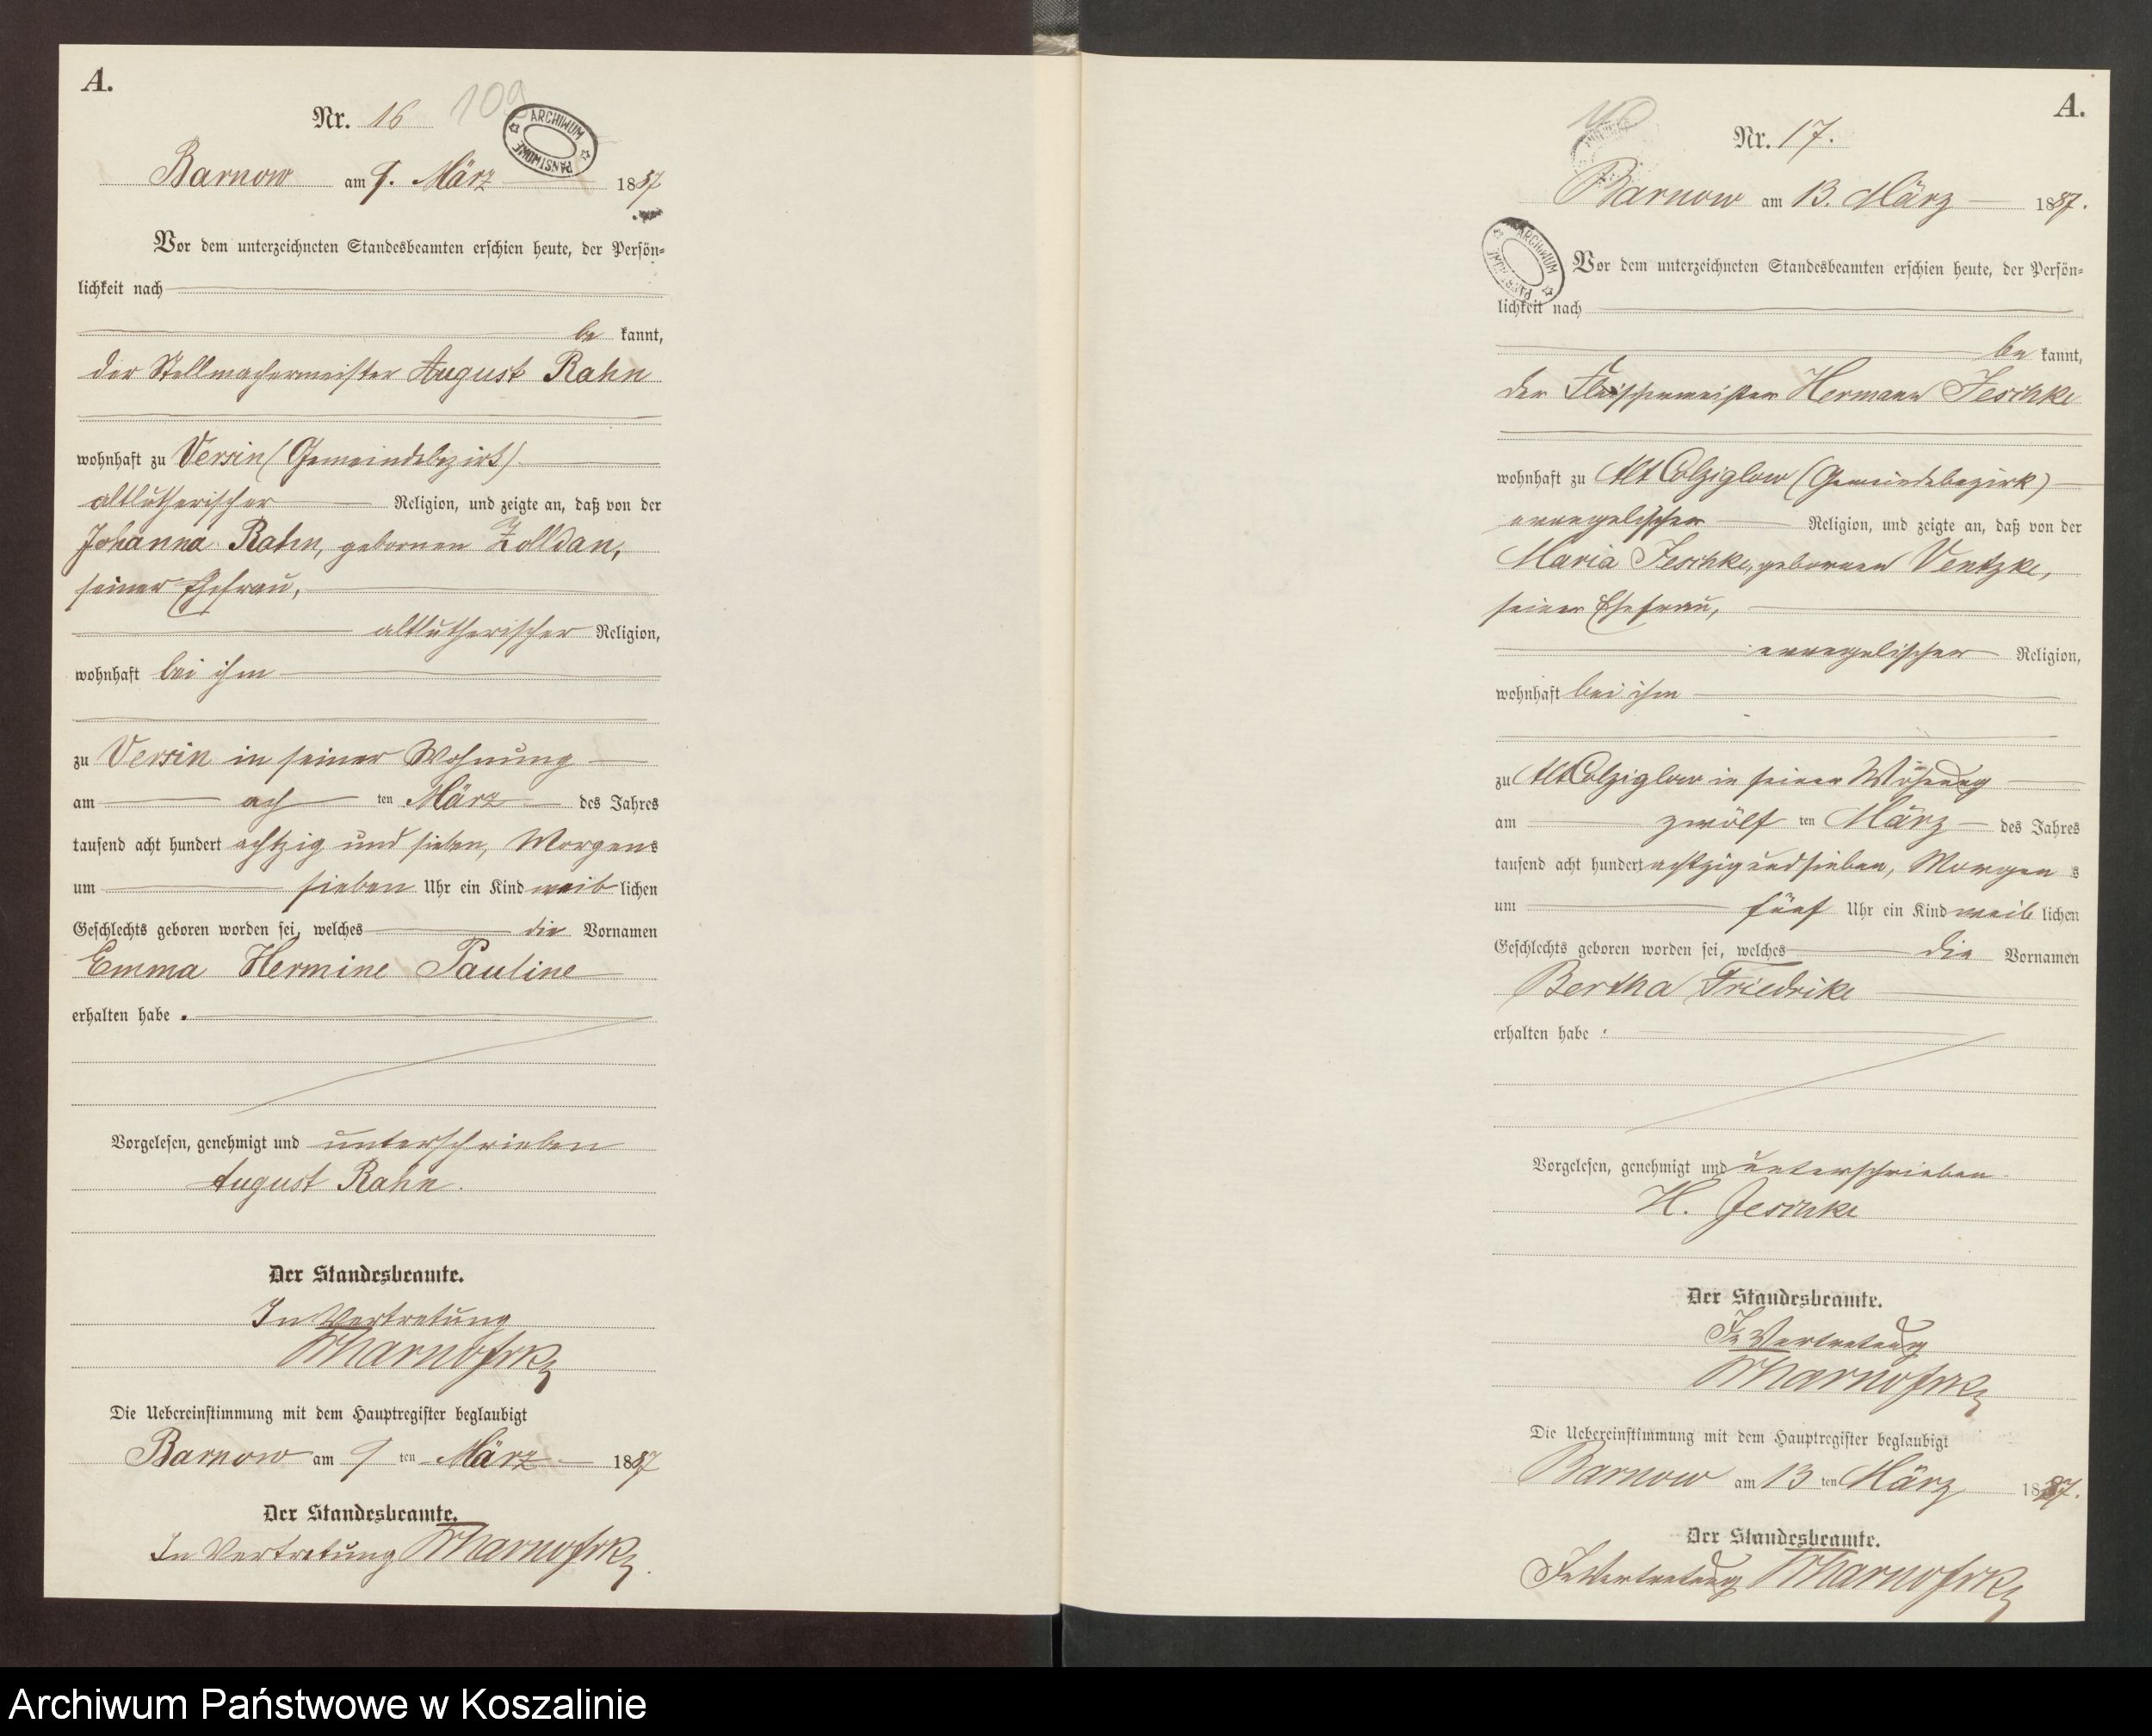 A.
Nr. 16
109
ARCHIWUM PAŃSTWOWE
Barnow am 9. März 1887
Vor dem unterzeichneten Standesbeamten erschien heute, der Persön=
lichkeit nach
be kannt,
der Stellmachermeister August Rahn
wohnhaft zu Versin (Gemeindebezirk)
altlutherischer Religion, und zeigte an, daß von der
Johanna Rahn, gebornen Zolldan,
seiner Ehefrau,
altlutherischer Religion,
wohnhaft bei ihm
zu Versin in seiner Wohnung
am ach ten März des Jahres
tausend acht hundert achtzig und sieben, Morgens
um sieben Uhr ein Kind weib lichen
Geschlechts geboren worden sei, welches die Vornamen
Emma Hermine Pauline
erhalten habe.
Vorgelesen, genehmigt und unterschrieben
August Rahn.
Der Standesbeamte.
In Vertretung
Die Uebereinstimmung mit dem Hauptregister beglaubigt
Barnow am 9 ten März 1887
Der Standesbeamte.
In Vertretung
A.
Nr. 17.
Barnow am 13. März 1887.
ARCHIWUM PAŃSTWOWE
Vor dem unterzeichneten Standesbeamten erschien heute, der Persön=
lichkeit nach
be kannt,
der Fleischermeister Hermann Jeschke
wohnhaft zu Alt Colziglow (Gemeindebezirk)
evangelischer Religion, und zeigte an, daß von der
Maria Jeschke, gebornen Ventzke,
seiner Ehefrau,
evangelischer Religion,
wohnhaft bei ihm
zu Alt Colziglow in seiner Wohnung
am zwölf ten März des Jahres
tausend acht hundert achtzig und sieben, Morgen s
um fünf Uhr ein Kind weib lichen
Geschlechts geboren worden sei, welches die Vornamen
Bertha Friedrike
erhalten habe.
Vorgelesen, genehmigt und unterschrieben.
H. Jeschke
Der Standesbeamte.
In Vertretung
Die Uebereinstimmung mit dem Hauptregister beglaubigt
Barnow am 13 ten März 1887.
Der Standesbeamte.
In Vertretung
Archiwum Państwowe w Koszalinie